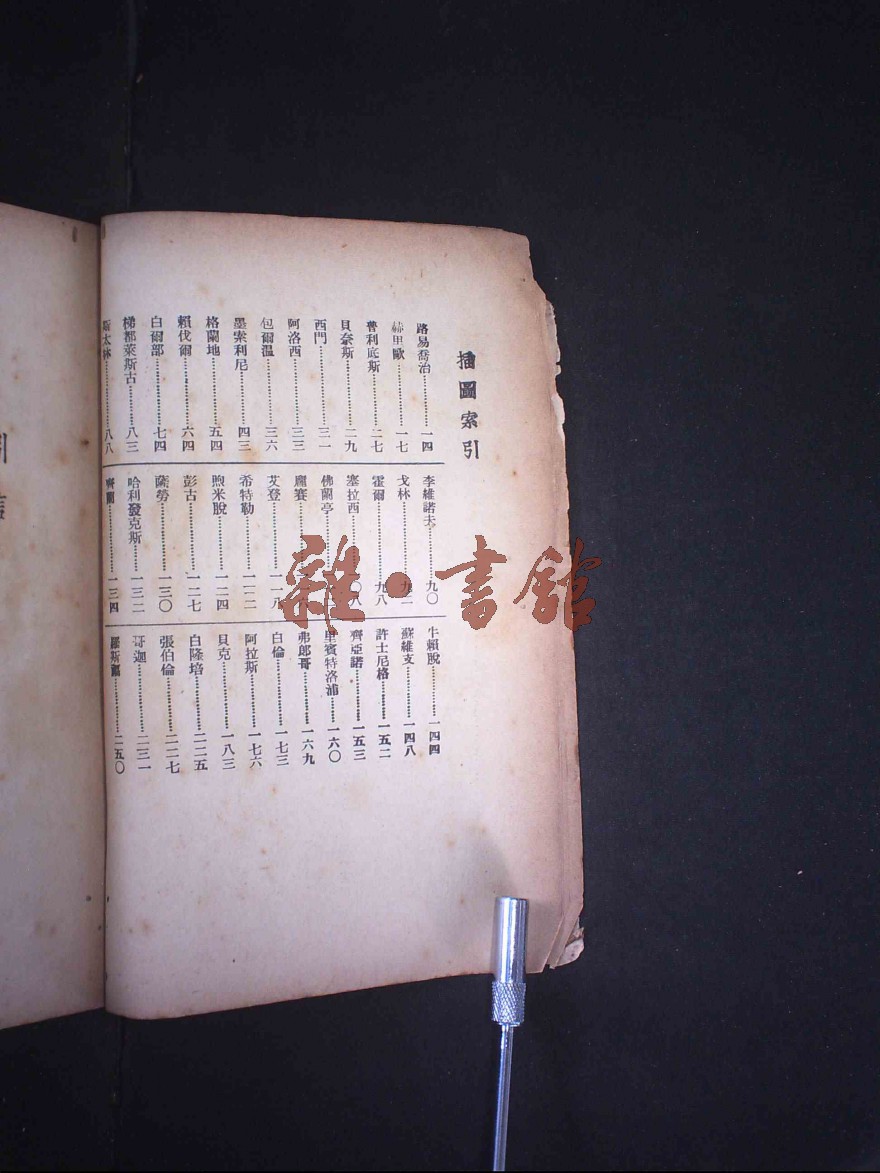 插圖索引
路易喬治………一四
赫里歐………一七
普利底斯………二七
貝奈斯………二九
西門………三一
阿洛西………三三
包爾溫………三六
墨索利尼………四三
格蘭地………五四
賴伐爾………六四
白爾部………七四
梯都萊斯古………八三
斯太林………八八
李維諾夫………九〇
戈林………九二
霍爾………九八
塞拉西………〇八
佛蘭亭………
龐賽………
艾登………一一八
希特勒………一二二
煦米脫………一二四
彭古………一二七
薩勞………一三〇
哈利發克斯………一三二
齊蘭………一三四
牛賴脫………一四四
蘇維支………一四八
許士尼格………一五二
齊亞諾………一五三
里賓特洛浦………一六〇
弗郎哥………一六九
白倫………一七三
阿拉斯………一七六
貝克………一八三
白隆培………二二五
張伯倫………二二七
哥迦………二三一
羅斯福………二五〇
引
雜·書館